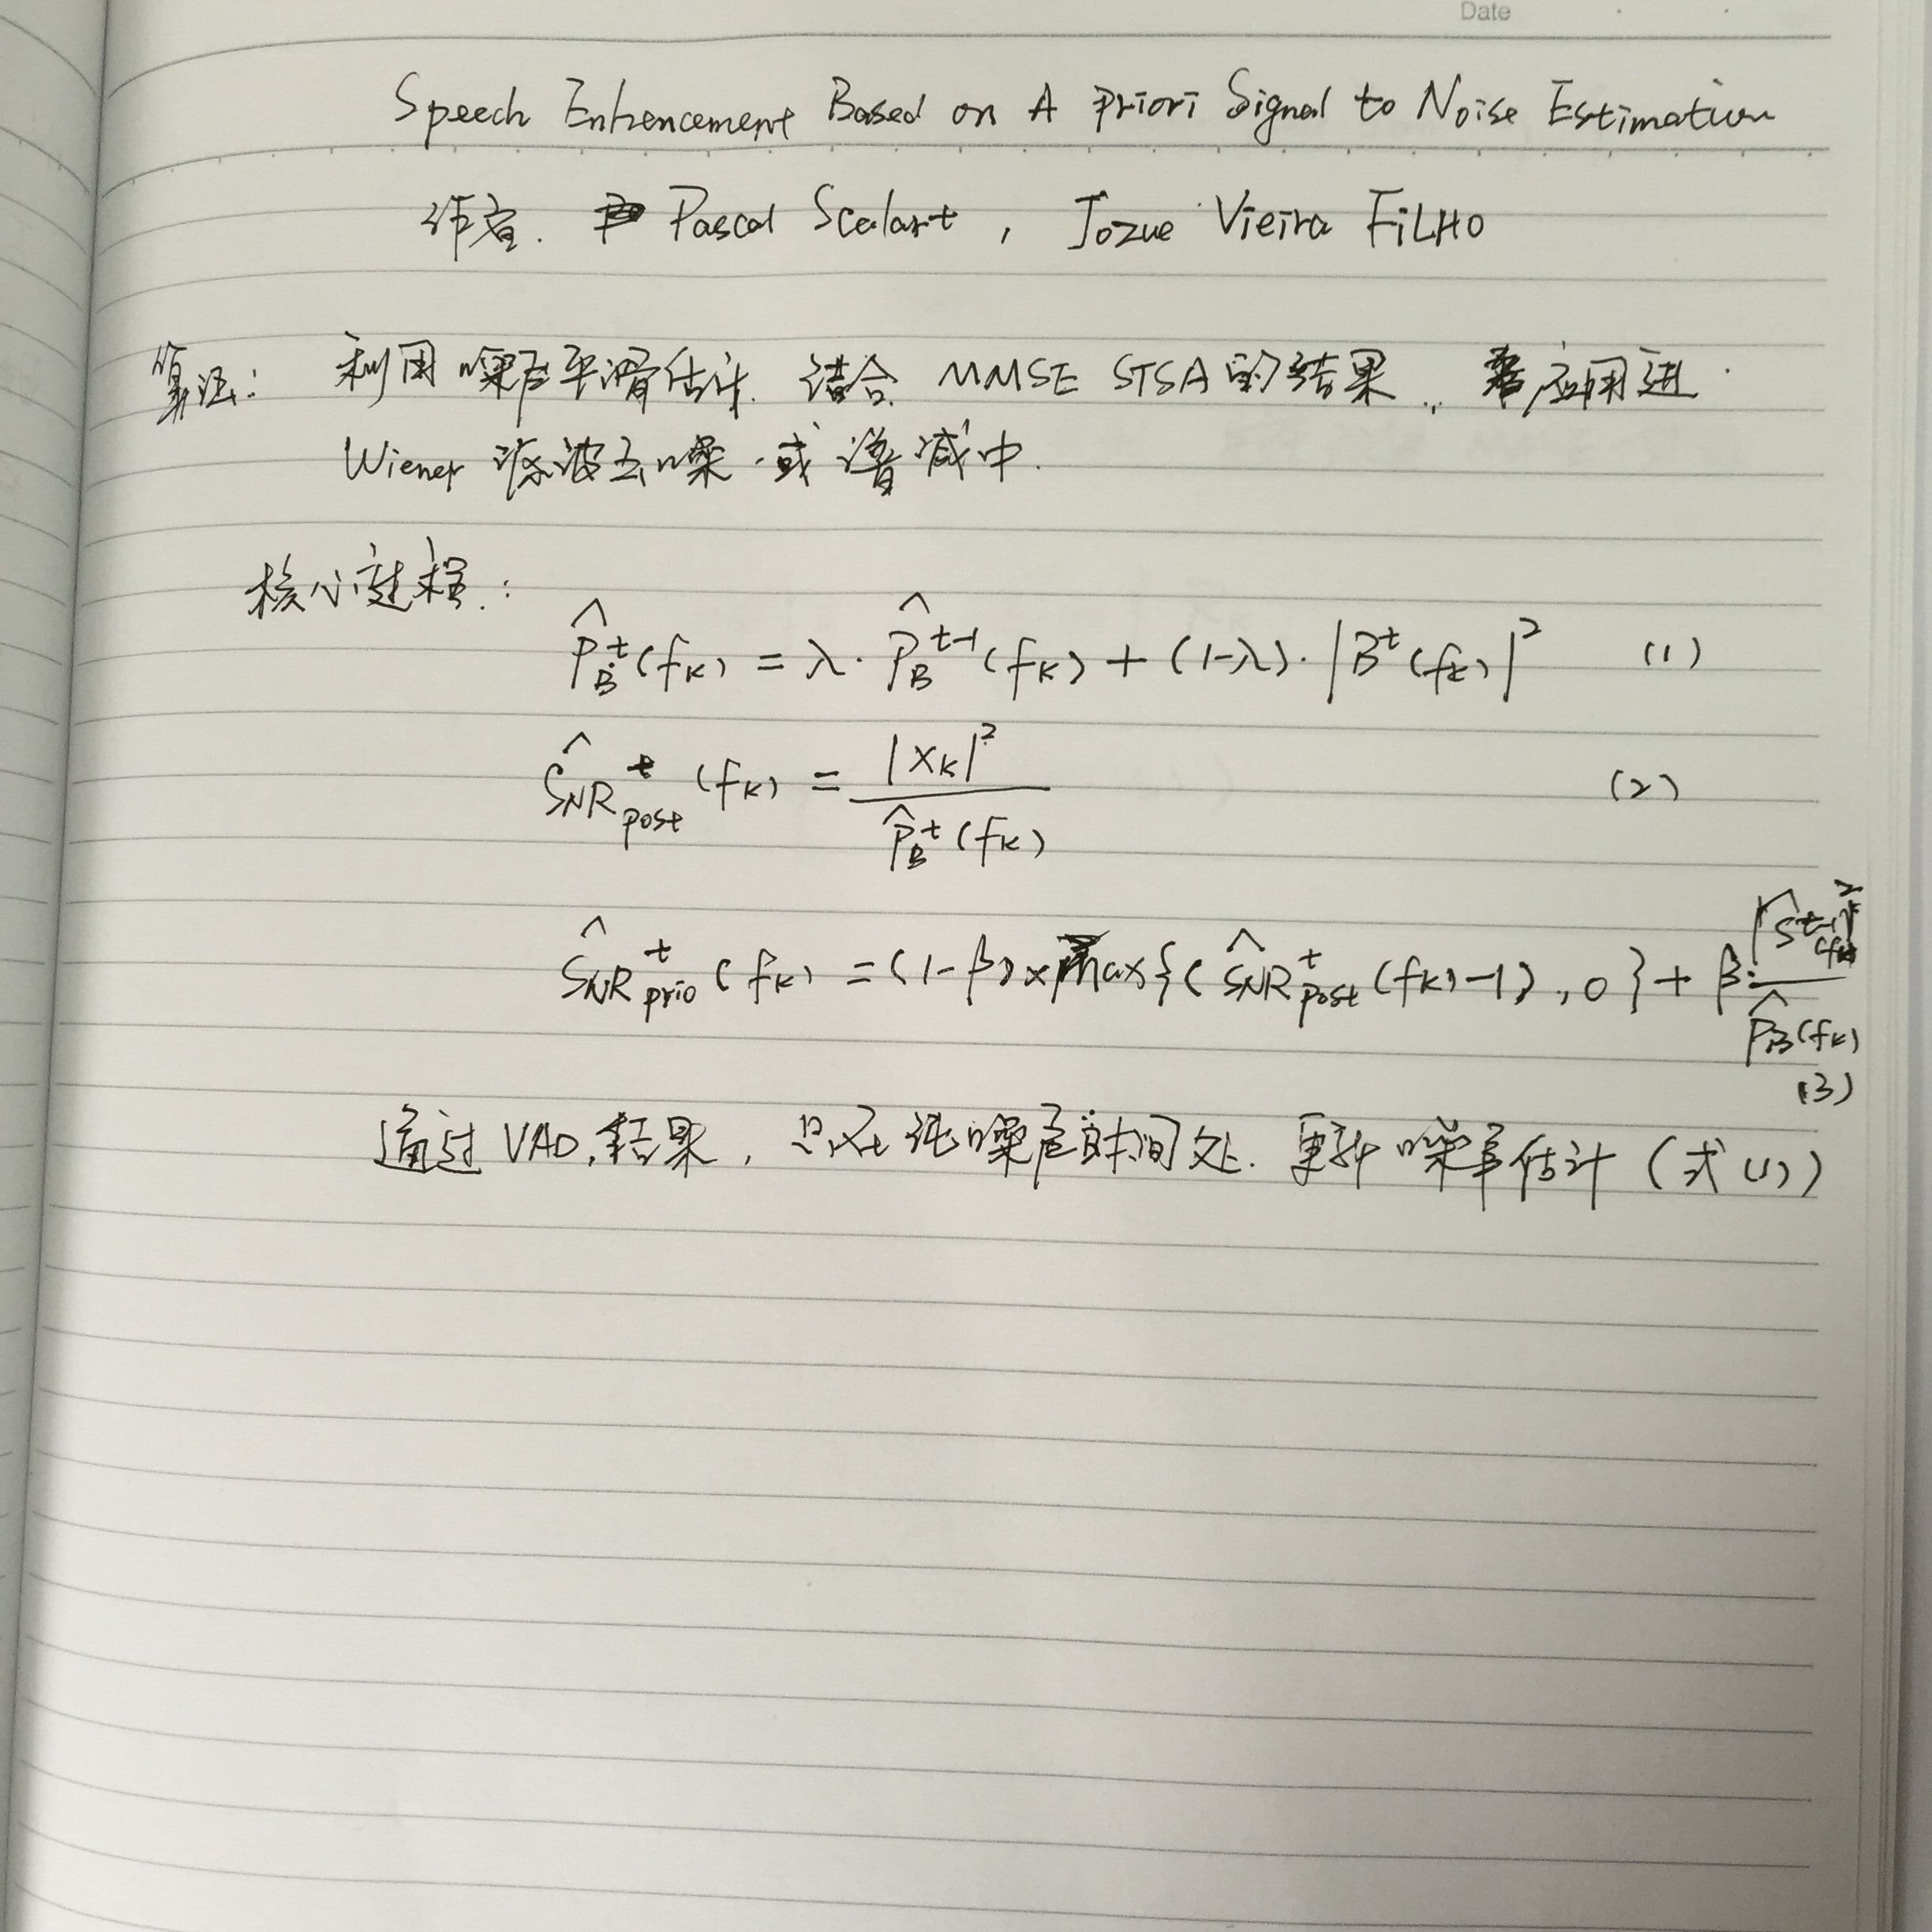 Date
Speech Enhencement Based on A Priori Signal to Noise Estimation
作者. Pascal Scalart , Jozue Vieira FiLHO
算法: 利用噪声平滑估计. 结合 MMSE STSA的结果, 应用进
Wiener 滤波去噪 或 谱减中.
核心过程:
P̂_B^t(f_k) = λ · P̂_B^{t-1}(f_k) + (1-λ) · |B^t(f_k)|² (1)
ŜNR_post^t(f_k) = |X_k|² / P̂_B^t(f_k) (2)
ŜNR_prio^t(f_k) = (1-β) × Max{(ŜNR_post^t(f_k)-1), 0} + β · |Ŝ^{t-1}(f_k)|² / P̂_B(f_k)
(3)
通过VAD,结果, 只在纯噪声时间处. 更新噪声估计 (式(1))